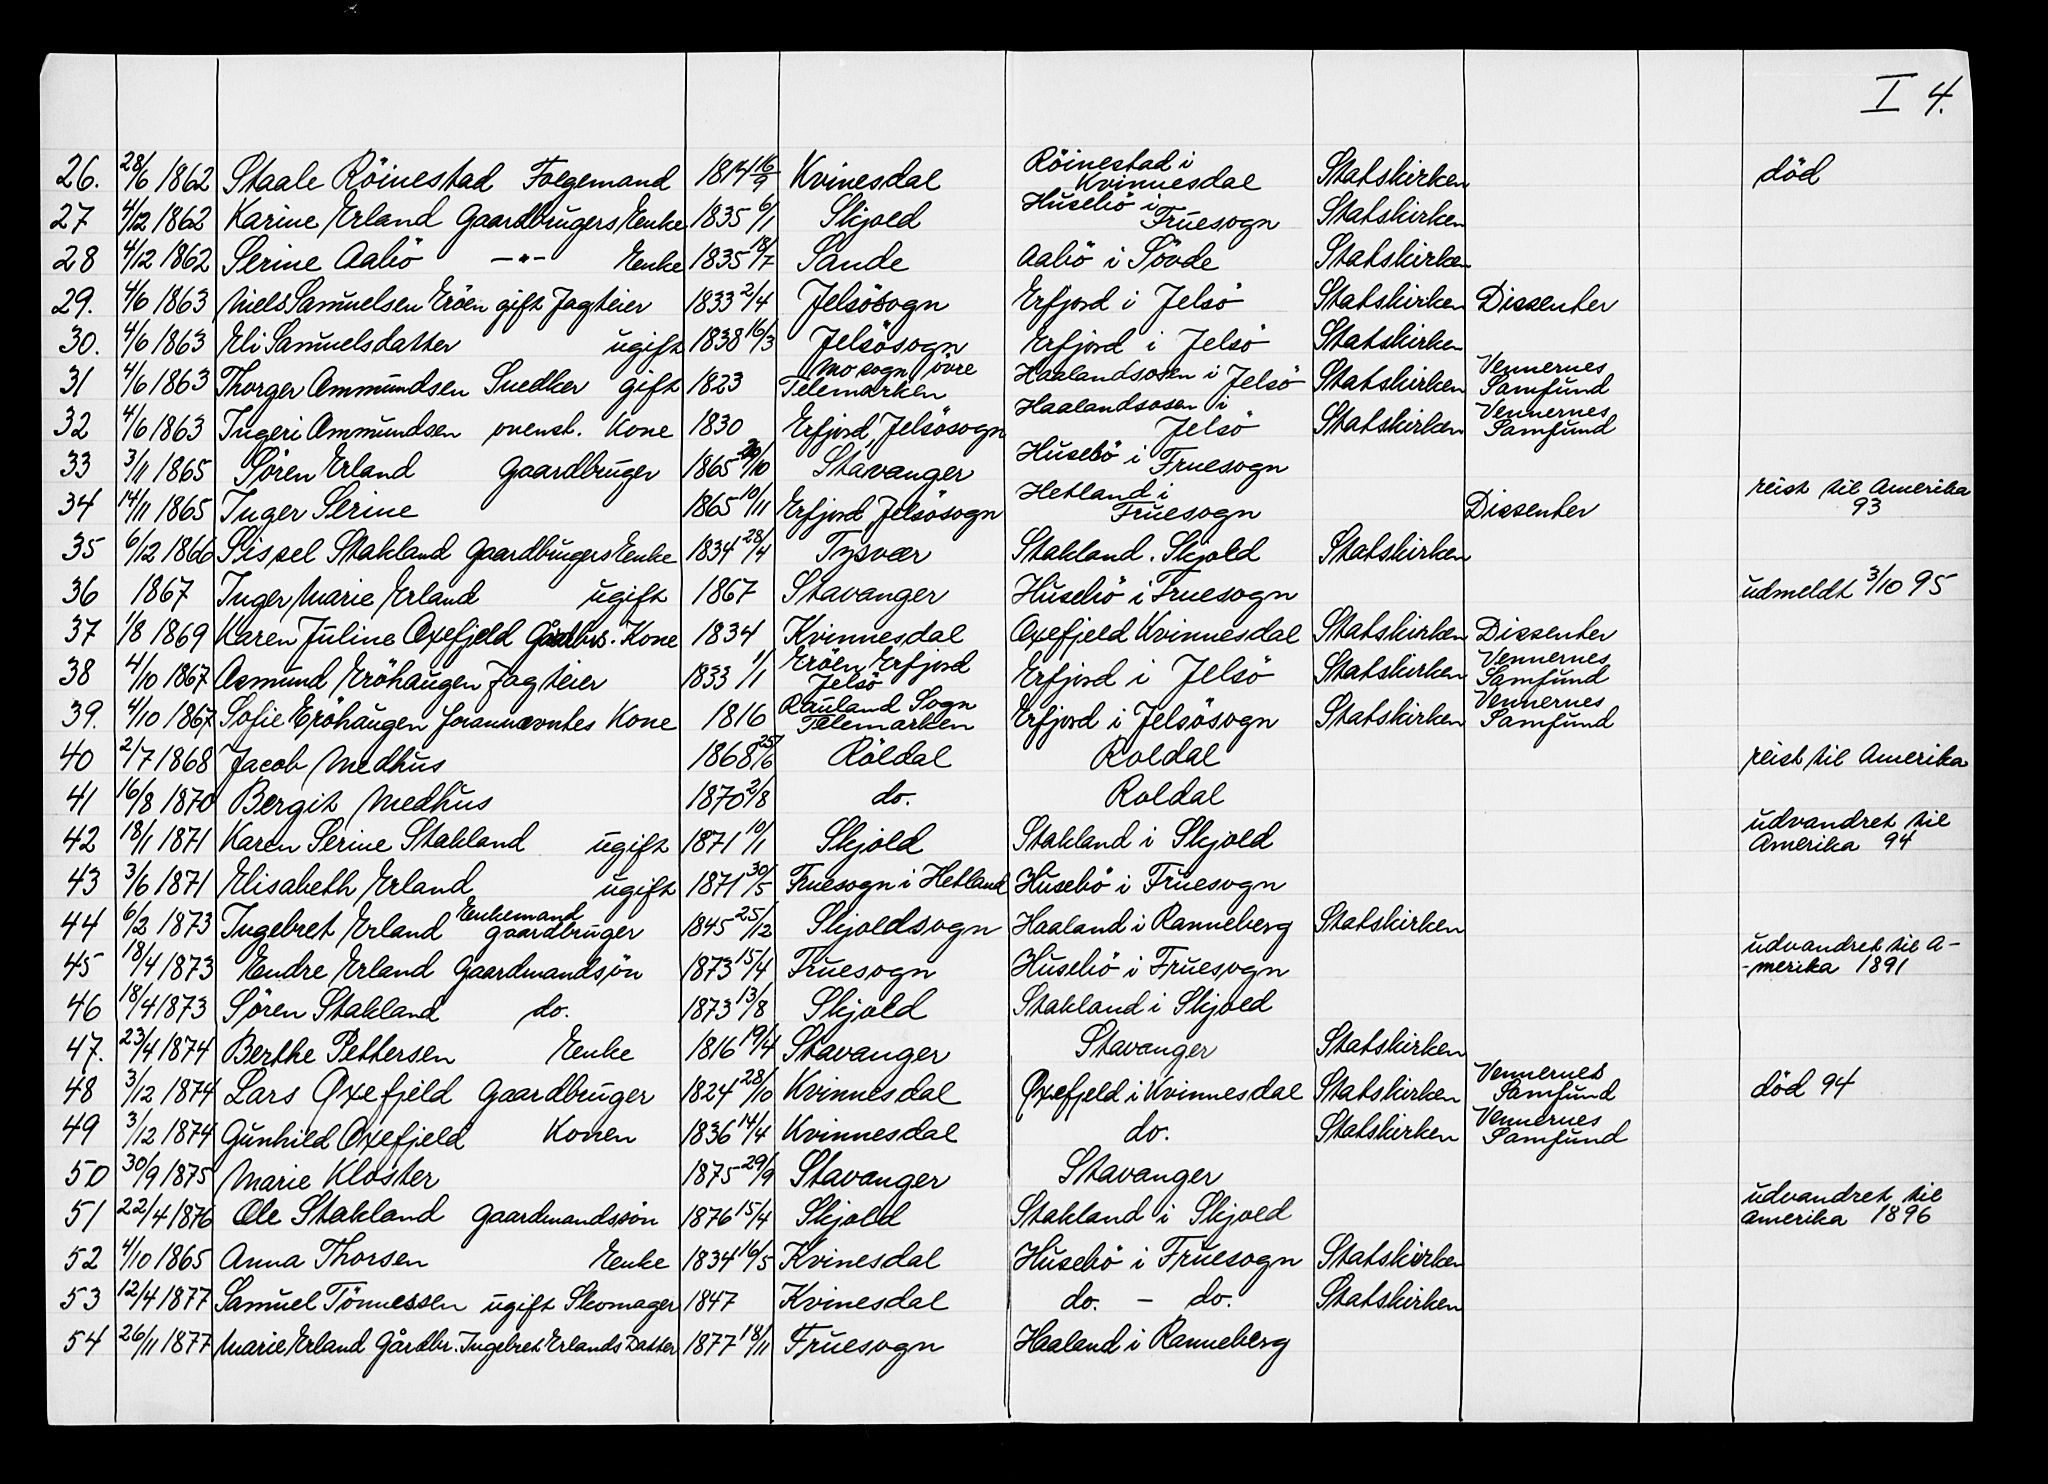 I 4.
26. 28/6 1862 Staale Röinestad Folgemand 1814 16/9 Kvinesdal Röinestad i Kvinnesdal Statskirken död
27 4/12 1862 Karine Erland Gaardbrugers Enke 1835 6/1 Skjold Husebö i Fruesogn Statskirken
28 4/12 1862 Serine Aabö -"- Enke 1835 18/7 Sande Aabö i Sövde Statskirken
29. 4/6 1863 Niels Samuelsen Eröen gift Jagteier 1833 2/4 Jelsösogn Erfjord i Jelsö Statskirken Dissenter
30. 4/6 1863 Eli Samuelsdatter ugift 1838 16/3 Jelsösogn Erfjord i Jelsö Statskirken
31 4/6 1863 Thorger Ammundsen Snedker gift 1823 Mo sogn, övre Telemarken Haalandsosen i Jelsö Statskirken Vennernes Samfund
32 4/6 1863 Ingeri Ammundsen ovenst. Kone 1830 Erfjord, Jelsösogn Haalandsosen i Jelsö Statskirken Vennernes Samfund
33 3/11 1865 Sören Erland Gaardbruger 1865 20/10 Stavanger Husebö i Fruesogn
34 14/11 1865 Inger Serine 1865 10/11 Erfjord Jelsösogn Hetland i Fruesogn Dissenter reist til Amerika 93
35 6/12 1866 Sissel Stakland Gaardbrugers Enke 1834 28/4 Tysvær Stakland. Skjold Statskirken
36 1867 Inger Marie Erland ugift 1867 Stavanger Husebö i Fruesogn udmeldt 3/10 95
37 1/8 1869 Karen Juline Oxefjeld Gårdbr. Kone 1834 Kvinnesdal Oxefjeld Kvinnesdal Statskirken Dissenter
38 4/10 1867 Asmund Eröhaugen Jagteier 1833 1/1 Eröen Erfjord Jelsö Erfjord i Jelsö Statskirken Vennernes Samfund
39. 4/10 1867 Sofie Eröhaugen forannævntes Kone 1816 Rauland Sogn Telemarken Erfjord i Jelsösogn Statskirken Vennernes Samfund
40 2/7 1868 Jacob Medhus 1868 25/6 Röldal Roldal reist til Amerika
41 16/8 1870 Bergit Medhus 1870 2/8 do. Roldal
42 18/1 1871 Karen Serine Stakland ugift 1871 10/1 Skjold Stakland i Skjold udvandret til Amerika 94
43 3/6 1871 Elisabeth Erland ugift 1871 30/5 Fruesogn i Hetland Husebö i Fruesogn
44 6/2 1873 Ingebret Erland Enkemand gaardbruger 1845 25/12 Skjoldsogn Haaland i Ranneberg Statskirken
45 18/4 1873 Endre Erland Gaardmandsjön 1873 15/4 Fruesogn Husebö i Fruesogn udvandret til A-
-merika 1891
46 18/4 1873 Sören Stakland do. 1873 13/8 Skjold Stakland i Skjold
47. 23/4 1874 Berthe Pettersen Enke 1816 19/4 Stavanger Stavanger Statskirken
48 3/12 1874 Lars Oxefjeld Gaardbruger 1824 28/10 Kvinnesdal Oxefjeld i Kvinnesdal Statskirken Vennernes Samfund död 94
49 3/12 1874 Gunhild Oxefjeld Konen 1836 14/4 Kvinnesdal do. Statskirken Vennernes Samfund
50 30/9 1875 Marie Kloster 1875 29/9 Stavanger Stavanger
51 22/4 1876 Ole Stakland Gaardmandssön 1876 15/4 Skjold Stakland i Skjold udvandret til Amerika 1896
52 4/10 1865 Anna Thorsen Enke 1834 16/5 Kvinesdal Husebö i Fruesogn Statskirken
53 12/4 1877 Samuel Tönnessen ugift Skomager 1847 Kvinesdal do. - do. Statskirken
54 26/11 1877 Marie Erland Gårdbr. Ingebret Erlands Datter 1877 18/11 Fruesogn Haaland i Ranneberg